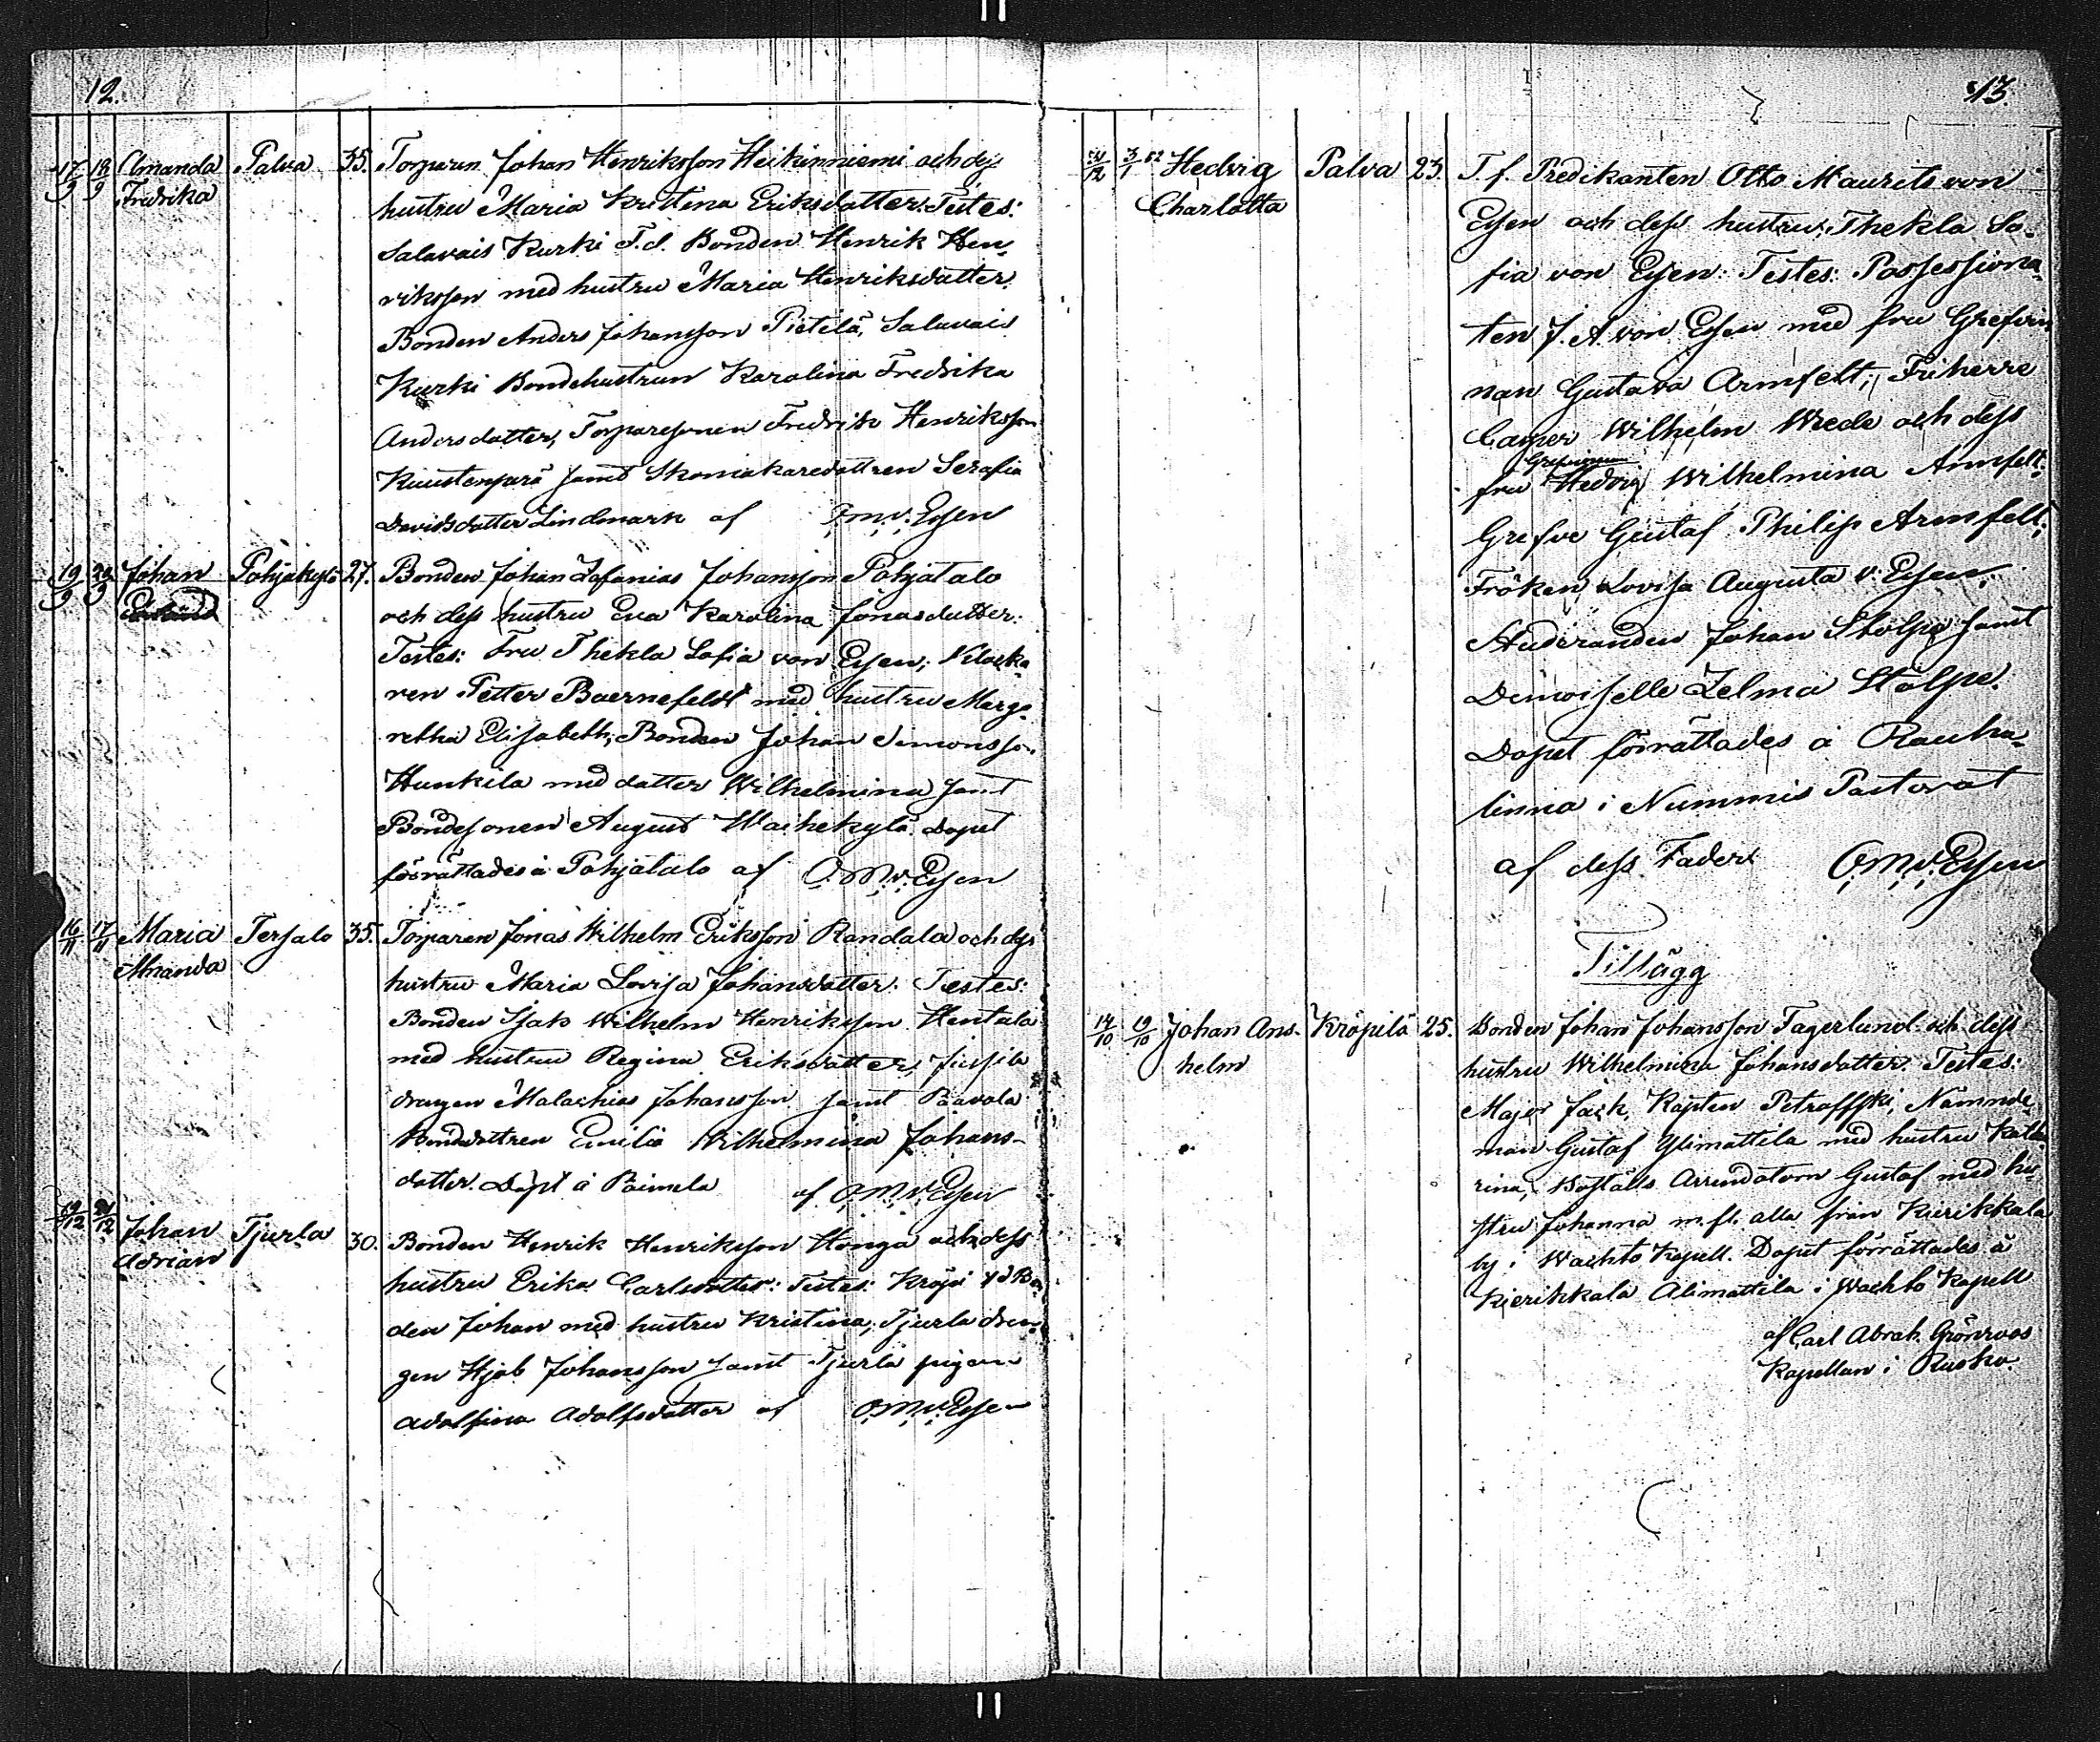 12.
17/9 18/9 Amanda Palva 35. Torparen Johan Henriksson Heikinniemi och dess
Fredrika hustru Maria Kristina Eriksdatter. Testes:
Salavais Kurki F.d. Bonden Henrik Hen-
riksson med hustru Maria Henriksdatter.
Bonden Anders Johansson Pietilä, Salavais
Kurki Bondehustrun Karolina Fredrika
Andersdatter, Torparesonen Fredrik Henriksson
Kuustenperä samt Skomakaredattren Serafia
Davidsdatter Lindmark af O.M.v. Essen
19/9 Johan Pohjakylä 27. Bonden Johan Zefanias Johansson Pohjatalo
och dess hustru Eva Karolina Jonasdatter.
Testes: Fru Thekla Sofia von Essen; Klocka
ren Petter Baernefeldt med hustru Marga-
retha Elisabeth; Bonden Johan Simonsson
Hunkila med datter Wilhelmina samt
Bondesonen August Waihekylä. Dopet
förrättades å Pohjatalo af O.M.v. Essen
16/11 17/11 Maria Tersalo 35. Torparen Jonas Wilhelm Eriksson Randala och dess
Amanda hustru Maria Lovisa Johansdatter. Testes:
Bonden Isak Wilhelm Henriksson Hentala
med hustru Regina Eriksdatter, Jussila
drengen Malachias Johansson samt Paavola
Bondedattren Emilia Wilhelmina Johans-
datter. Döpt å Paimela af O.M.v. Essen
19/12 21/12 Johan Tjurla 30. Bonden Henrik Henriksson Honga och dess
Adrian hustru Erika Carlsdatter: Testes: Kröpi
den Johan med hustru Kristina; Tjurla dren-
gen Hjob Johansson samt Tjurla pigan
Adolfina Adolfsdatter af O.M.v. Essen
13.
3/1 52 Hedvig Palva 23. T.f. Predikanten Otto Maurits von
Charlotta Essen och dess hustru Thekla So-
fia von Essen: Testes: Possessiona-
ten J. A. von Essen med fru Grefvin
nan Gustava Armfelt; Friherre
Casper Wilhelm Wrede och dess
Grefvinnan
fru Hedvig Wilhelmina Armfelt;
Grefve Gustaf Philip Armfelt;
Fröken Lovisa Augusta v. Essen;
Studeranden Johan Stolpe samt
Demoiselle Zelma Stolpe.
Dopet förrättades å Rauha-
linna i Nummis Pastorat
af dess Fader O.M.v. Essen
Tillägg
14/10 19/10 Johan Ans- Kröpilä 25. Bonden Johan Johansson Fagerlund och dess
helm hustru Wilhelmina Johansdatter. Testes:
Major Jack, Kapten Petroffski, Nämnde-
man Gustaf Ylimattila med hustru Katha
rina, Boställs Arrendatorn Gustaf med hu-
stru Johanna m.fl. alla från Kierikkala
by i Wachto Kapell. Dopet förrättades å
Kierikkala Alimattila i Wachto Kapell
af Carl Abrah. Grönroos
Kapellan i Rusko.